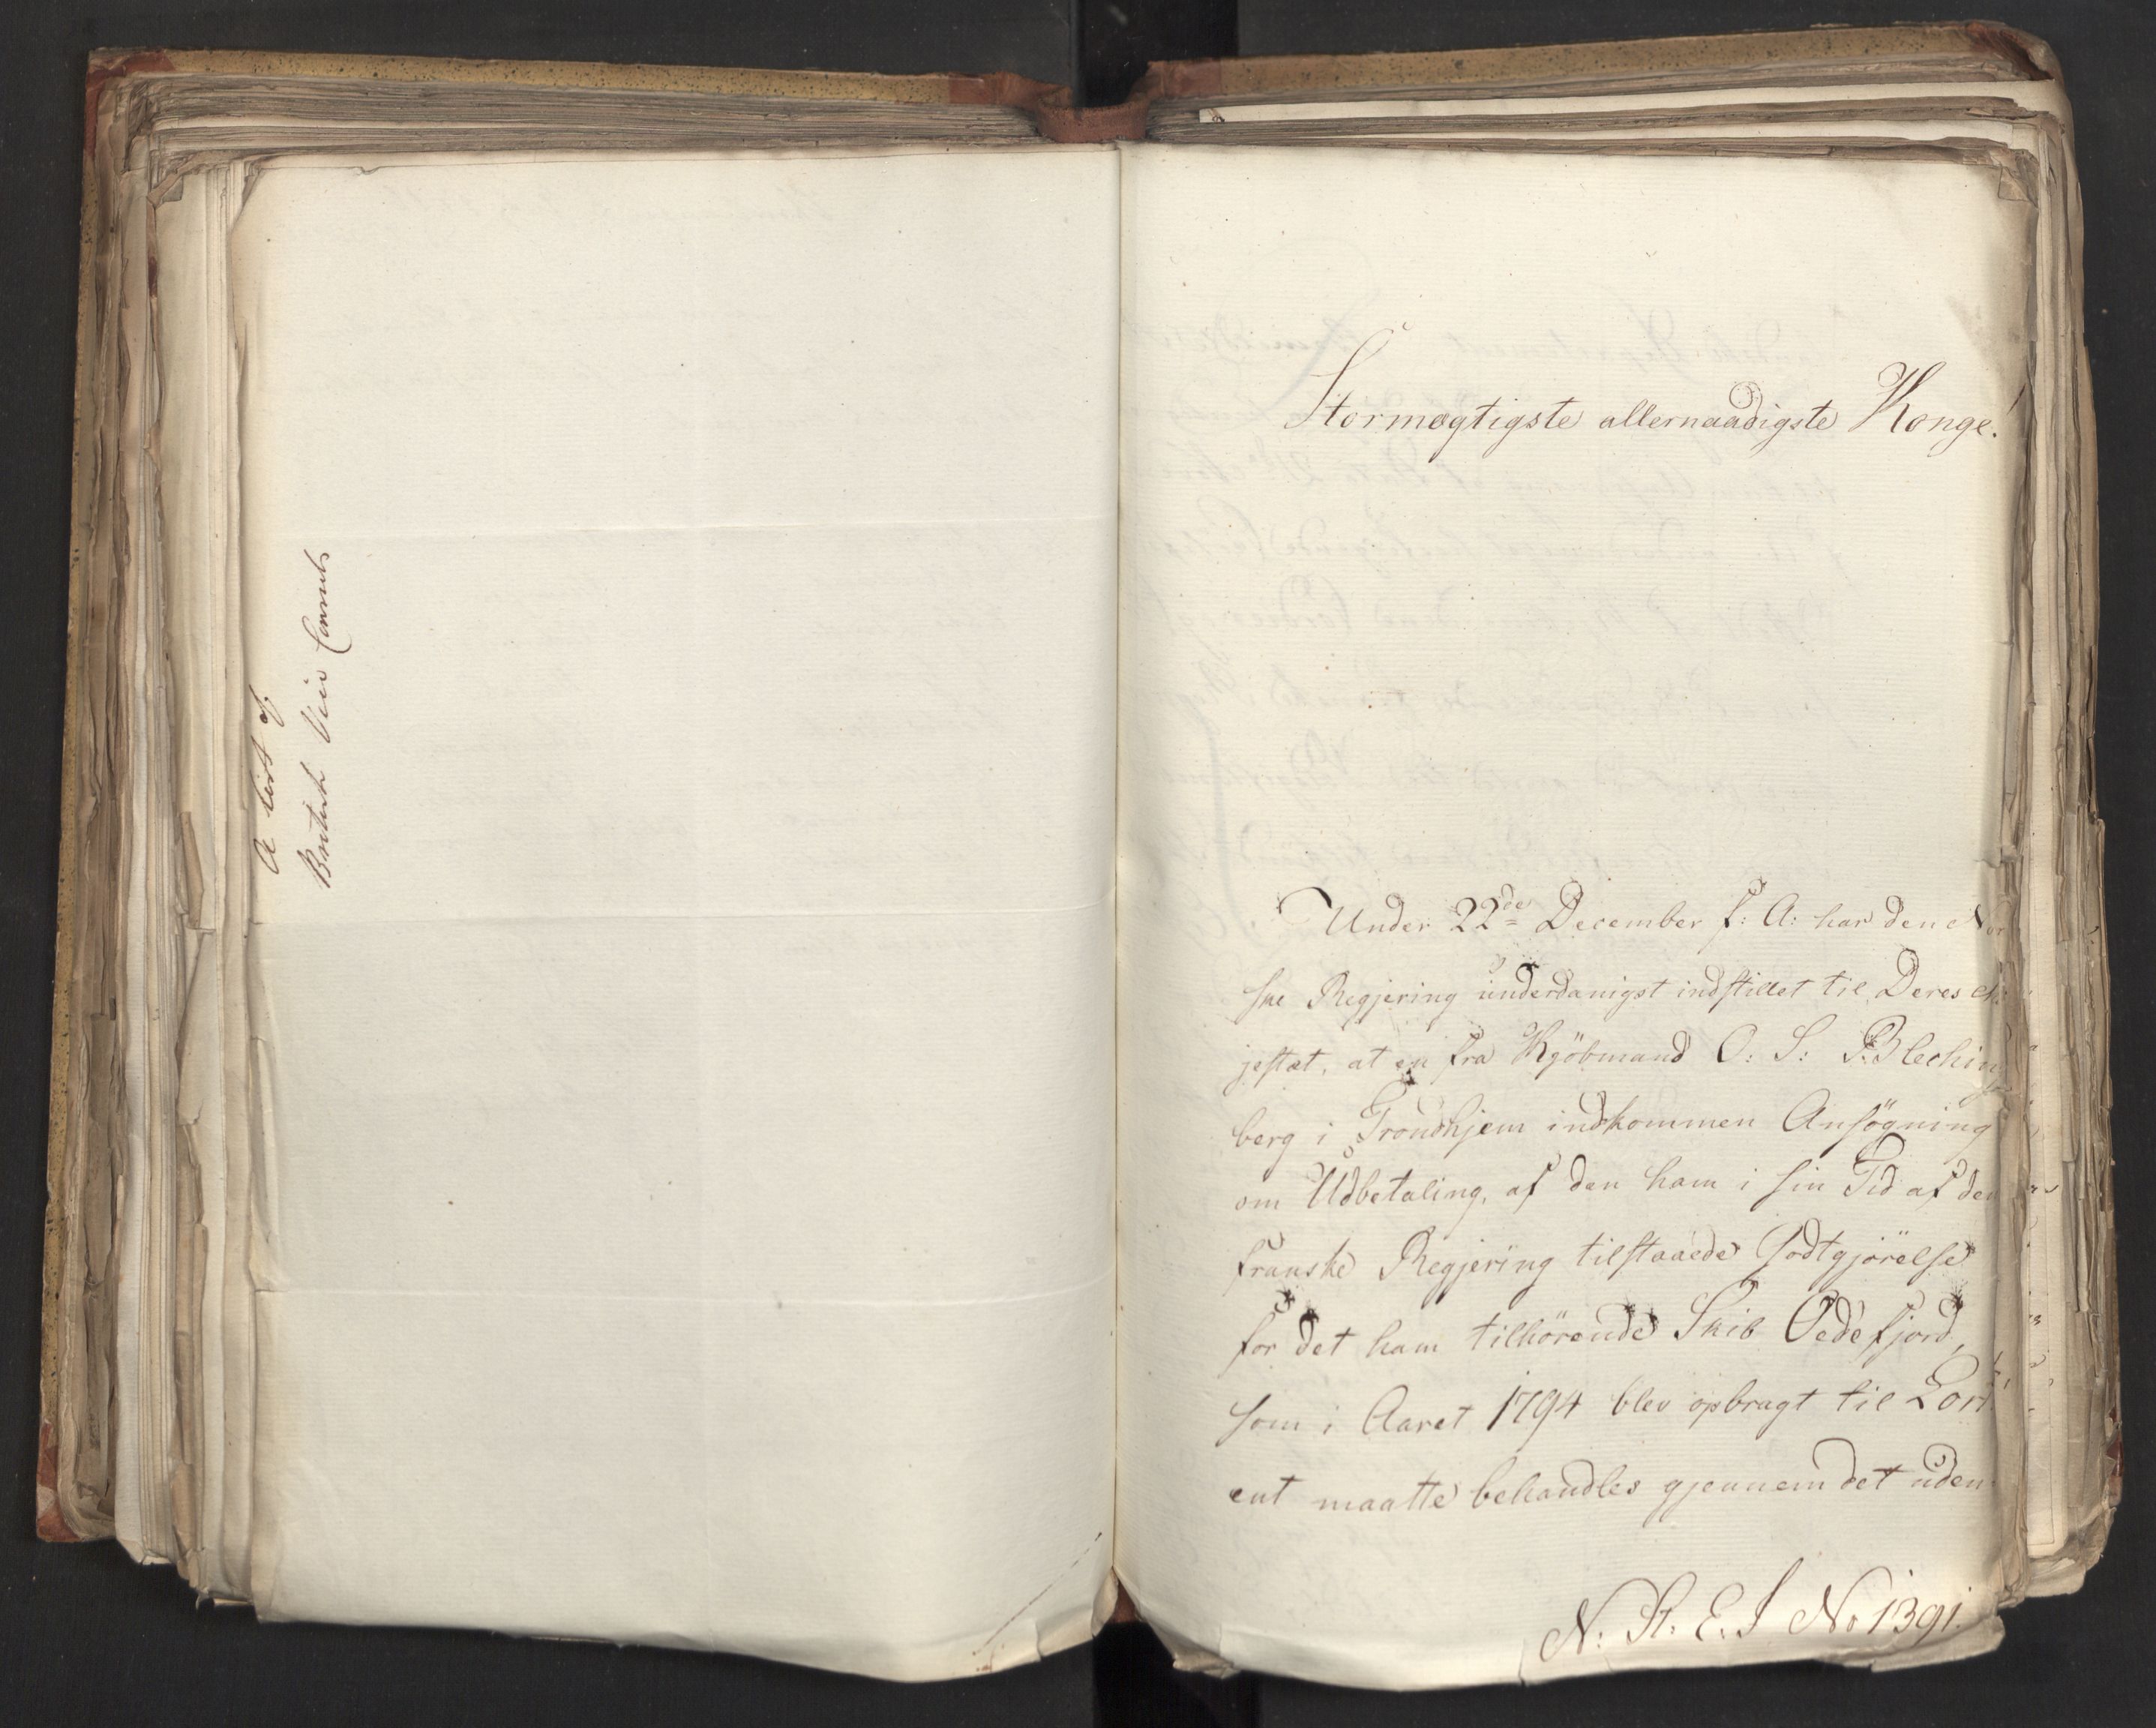 A List of
British Vice Consuls
Stormægtigste allernaadigste Konge!
Under 22de December f: A: har den Nor
ske Regjering underdanigst indstillet til Deres Ma
jestæt, at en fra Kjöbmand O: S: Bleching
berg i Trondhjem indkommen Ansögning
om Udbetaling, af den ham i sin Tid af den
franske Regjering tilstaaede Godtgjörelse
for det ham tilhörende Skib Oedefjord,
som i Aaret 1794 blev opbragt til Lori
ent maatte behandles gjennem det uden
N: R. E. J No 1391.